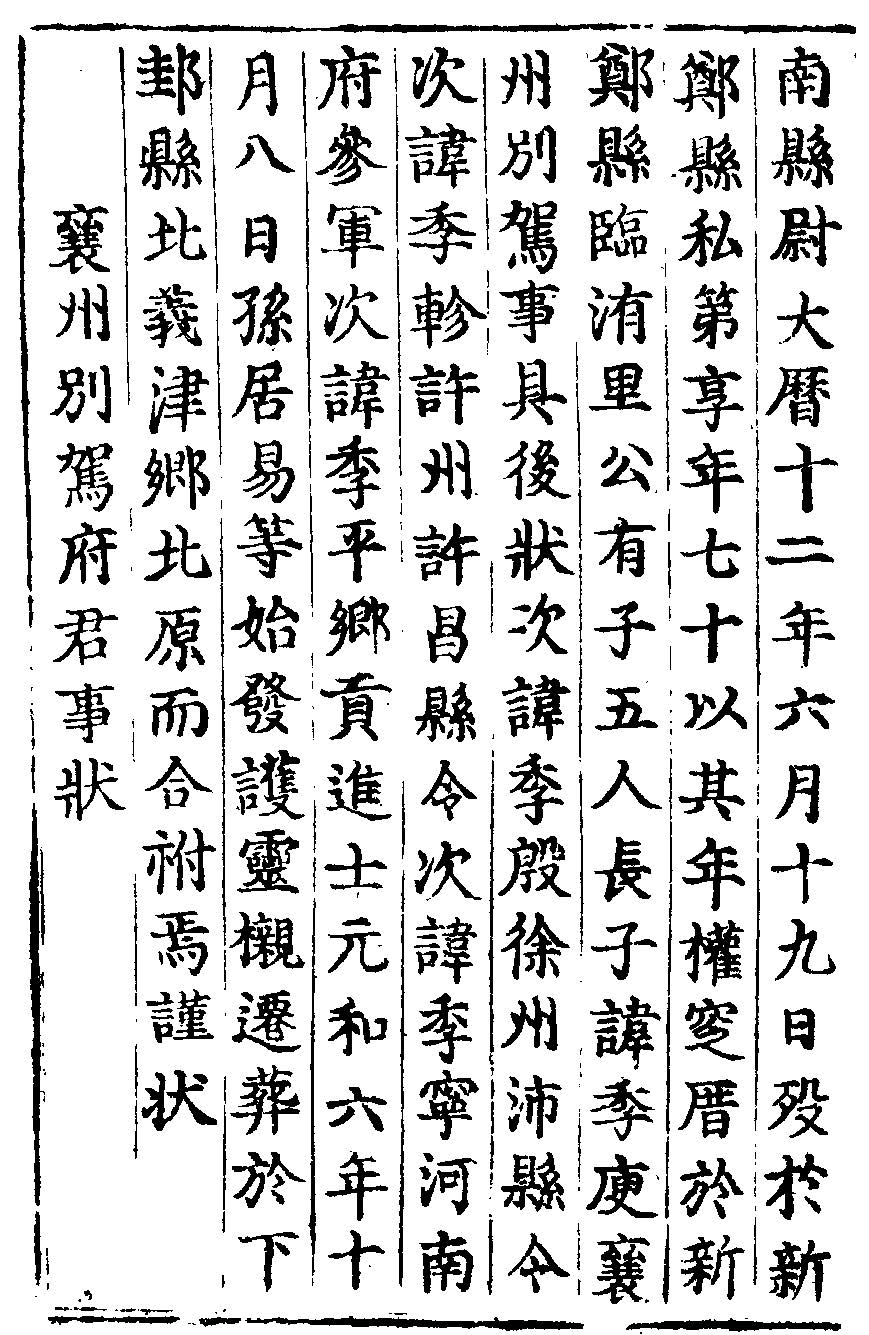 南縣尉大曆十二年六月十九日歿於新
鄭縣私第享年七十以其年權窆厝於新
鄭縣臨洧里公有子五人長子諱季庚襄
州別駕事具後狀次諱季殷徐州沛縣令
次諱季軫許州許昌縣令次諱季寧河南
府參軍次諱季平鄉貢進士元和六年十
月八日孫居易等始發護靈櫬遷葬於下
邽縣北義津鄉北原而合祔焉謹狀
襄州別駕府君事狀